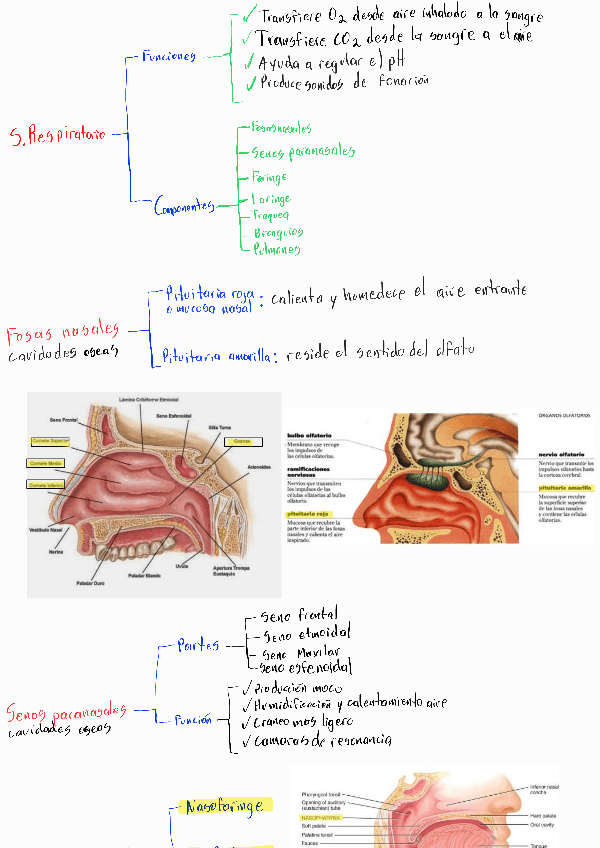 ✓ Transfiere O2 desde aire inhalado a la sangre
✓ Transfiere CO2 desde la sangre a el aire
Funciones
✓ Ayuda a regular el pH
✓ Produce sonidos de fonación
S. Respiratorio
Fosas nasales
Senos paranasales
Faringe
Componentes
Laringe
Traquea
Bronquios
Pulmones
Pituitaria roja
o mucosa nasal : calienta y humedece el aire entrante
Fosas nasales
cavidades oseas
Pituitaria amarilla : reside el sentido del olfato
Lámina Cribiforme Etmoidal
Seno Frontal
Seno Esfenoidal
Silla Turca
Cornete Superior
Coanas
Cornete Medio
Adenoides
Cornete Inferior
Vestíbulo Nasal
Narina
Paladar Duro
Paladar Blando
Uvula
Apertura Trompa
Eustaquio
ÓRGANOS OLFATORIOS
bulbo olfatorio
Membrana que recoge
los impulsos de
las células olfatorias.
ramificaciones
nerviosas
Nervios que transmiten
los impulsos de las
células olfatorias al bulbo
olfatorio.
pituitaria roja
Mucosa que recubre la
parte inferior de las fosas
nasales y calienta el aire
inspirado.
nervio olfatorio
Nervio que transmite los
impulsos olfatorios hasta
la corteza cerebral.
pituitaria amarilla
Mucosa que recubre
la superficie superior
de las fosas nasales
y contiene las células
olfatorias.
Seno frontal
Partes
Seno etmoidal
Seno Maxilar
Seno esfenoidal
Senos paranasales
cavidades oseas
✓ Producción moco
✓ Humidificación y calentamiento aire
Función
✓ Craneo mas ligero
✓ Camaras de resonancia
Nasofaringe
Pharyngeal tonsil
Opening of auditory
(eustachian) tube
NASOPHARYNX
Soft palate
Palatine tonsil
Fauces
Inferior nasal
concha
Hard palate
Oral cavity
Tongue